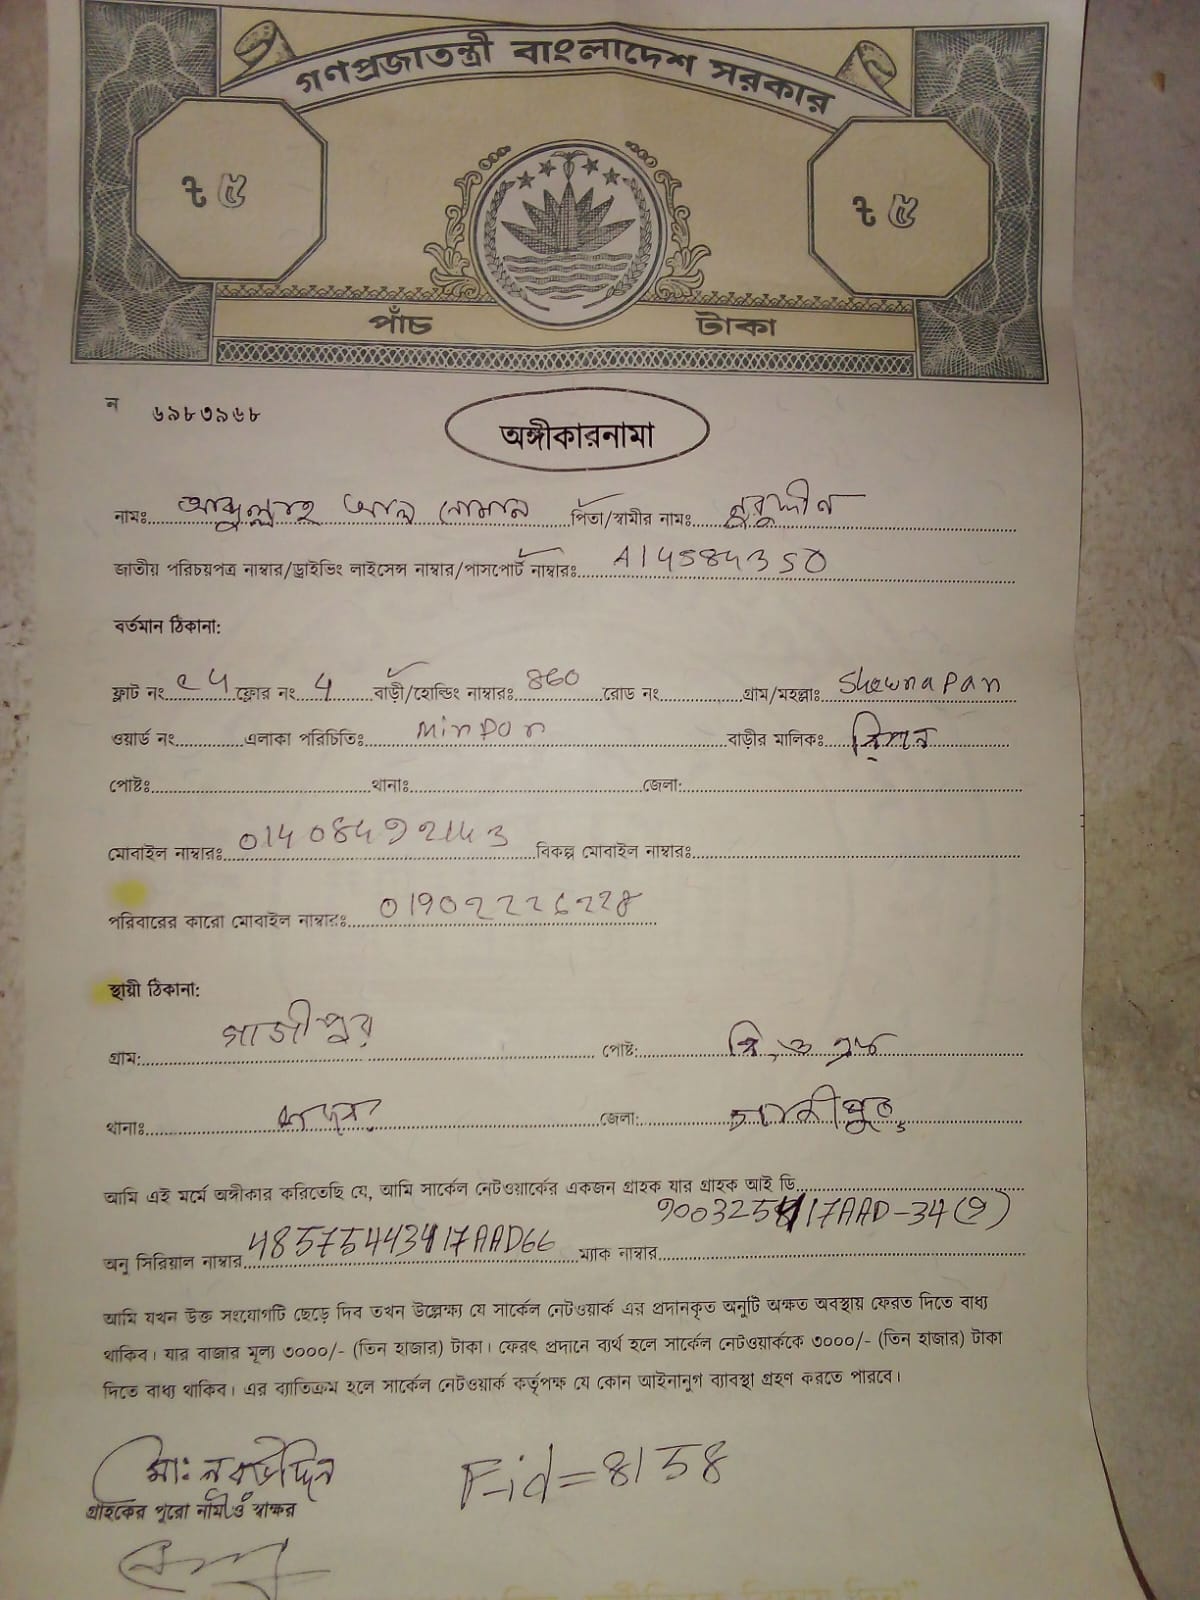 গণপ্রজাতন্ত্রী বাংলাদেশ সরকার
৳ ৫ ৳ ৫
পাঁচ টাকা
ন ৬৯৮৩৯৬৮
অঙ্গীকারনামা
নামঃ আব্দুল্লাহ আল নোমান পিতা/স্বামীর নামঃ নুরুদ্দীন
জাতীয় পরিচয়পত্র নাম্বার/ড্রাইভিং লাইসেন্স নাম্বার/পাসপোর্ট নাম্বারঃ A14584350
বর্তমান ঠিকানা:
ফ্লাট নং c4 ফ্লোর নং 4 বাড়ী/হোল্ডিং নাম্বারঃ 860 রোড নং গ্রাম/মহল্লাঃ Shewrapan
ওয়ার্ড নং এলাকা পরিচিতিঃ Mirpor বাড়ীর মালিকঃ
পোষ্টঃ থানাঃ জেলা:
মোবাইল নাম্বারঃ 01408492143 বিকল্প মোবাইল নাম্বারঃ
পরিবারের কারো মোবাইল নাম্বারঃ 01902226228
স্থায়ী ঠিকানা:
গ্রাম: গাজীপুর পোষ্ট:
থানাঃ জেলা: গাজীপুর
আমি এই মর্মে অঙ্গীকার করিতেছি যে, আমি সার্কেল নেটওয়ার্কের একজন গ্রাহক যার গ্রাহক আই ডি
অনু সিরিয়াল নাম্বার 48575443417AAD66 ম্যাক নাম্বার
আমি যখন উক্ত সংযোগটি ছেড়ে দিব তখন উল্লেক্ষ্য যে সার্কেল নেটওয়ার্ক এর প্রদানকৃত অনুটি অক্ষত অবস্থায় ফেরত দিতে বাধ্য
থাকিব। যার বাজার মূল্য ৩০০০/- (তিন হাজার) টাকা। ফেরৎ প্রদানে ব্যর্থ হলে সার্কেল নেটওয়ার্ককে ৩০০০/- (তিন হাজার) টাকা
দিতে বাধ্য থাকিব। এর ব্যাতিক্রম হলে সার্কেল নেটওয়ার্ক কর্তৃপক্ষ যে কোন আইনানুগ ব্যাবস্থা গ্রহণ করতে পারবে।
মো: Fid=8158
গ্রাহকের পুরো নাম ও স্বাক্ষর